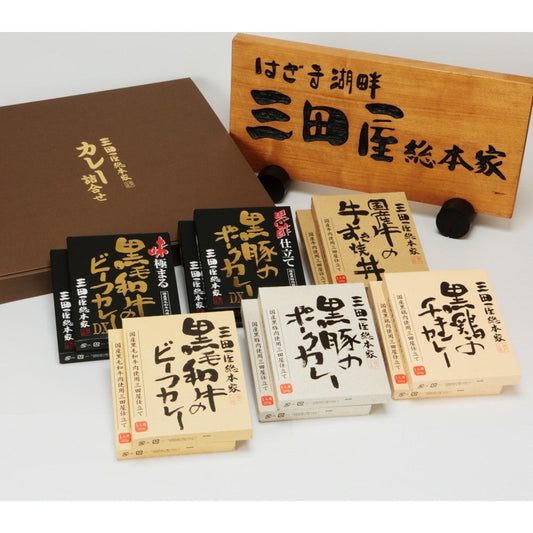 はざま湖畔
三田屋総本家
三田屋総本家
カレー
詰合せ
味
極まる
黒毛和牛の
ビーフカレー
DX
三田屋総本家
黒酢
仕立て
黒豚の
ポークカレー
DX
三田屋総本家
三田屋総本家
国産牛の
牛すき焼丼
三田屋総本家
黒毛和牛の
ビーフカレー
国産黒毛和牛肉使用三田屋仕立て
三田屋総本家
黒豚の
ポークカレー
国産黒豚肉使用三田屋仕立て
三田屋総本家
黒鶏の
チキンカレー
国産黒鶏肉使用三田屋仕立て